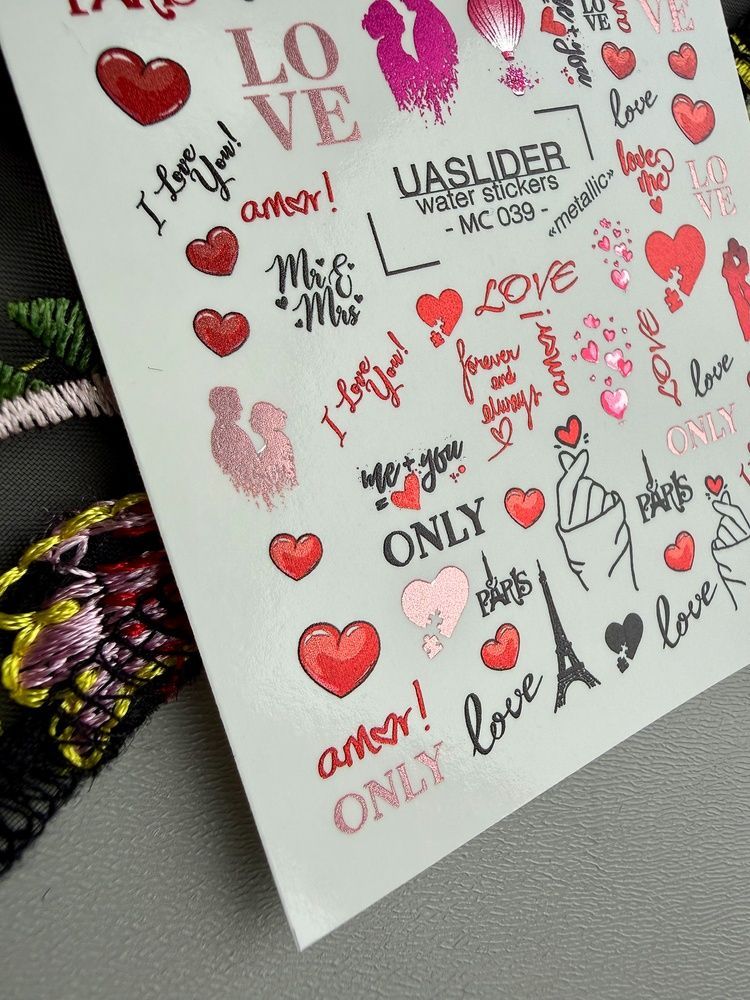 PARIS
LO
VE
me + you
LO
VE
amor!
VE
love
I Love
You!
amor!
UASLIDER
water stickers
- MC 039 -
«metallic»
love
me
LO
VE
Mr &
Mrs
LOVE
I Love
You!
forever
and
always
amor!
LOVE
love
ONLY
me + you
=
ONLY
PARIS
PARIS
love
love
amor!
ONLY